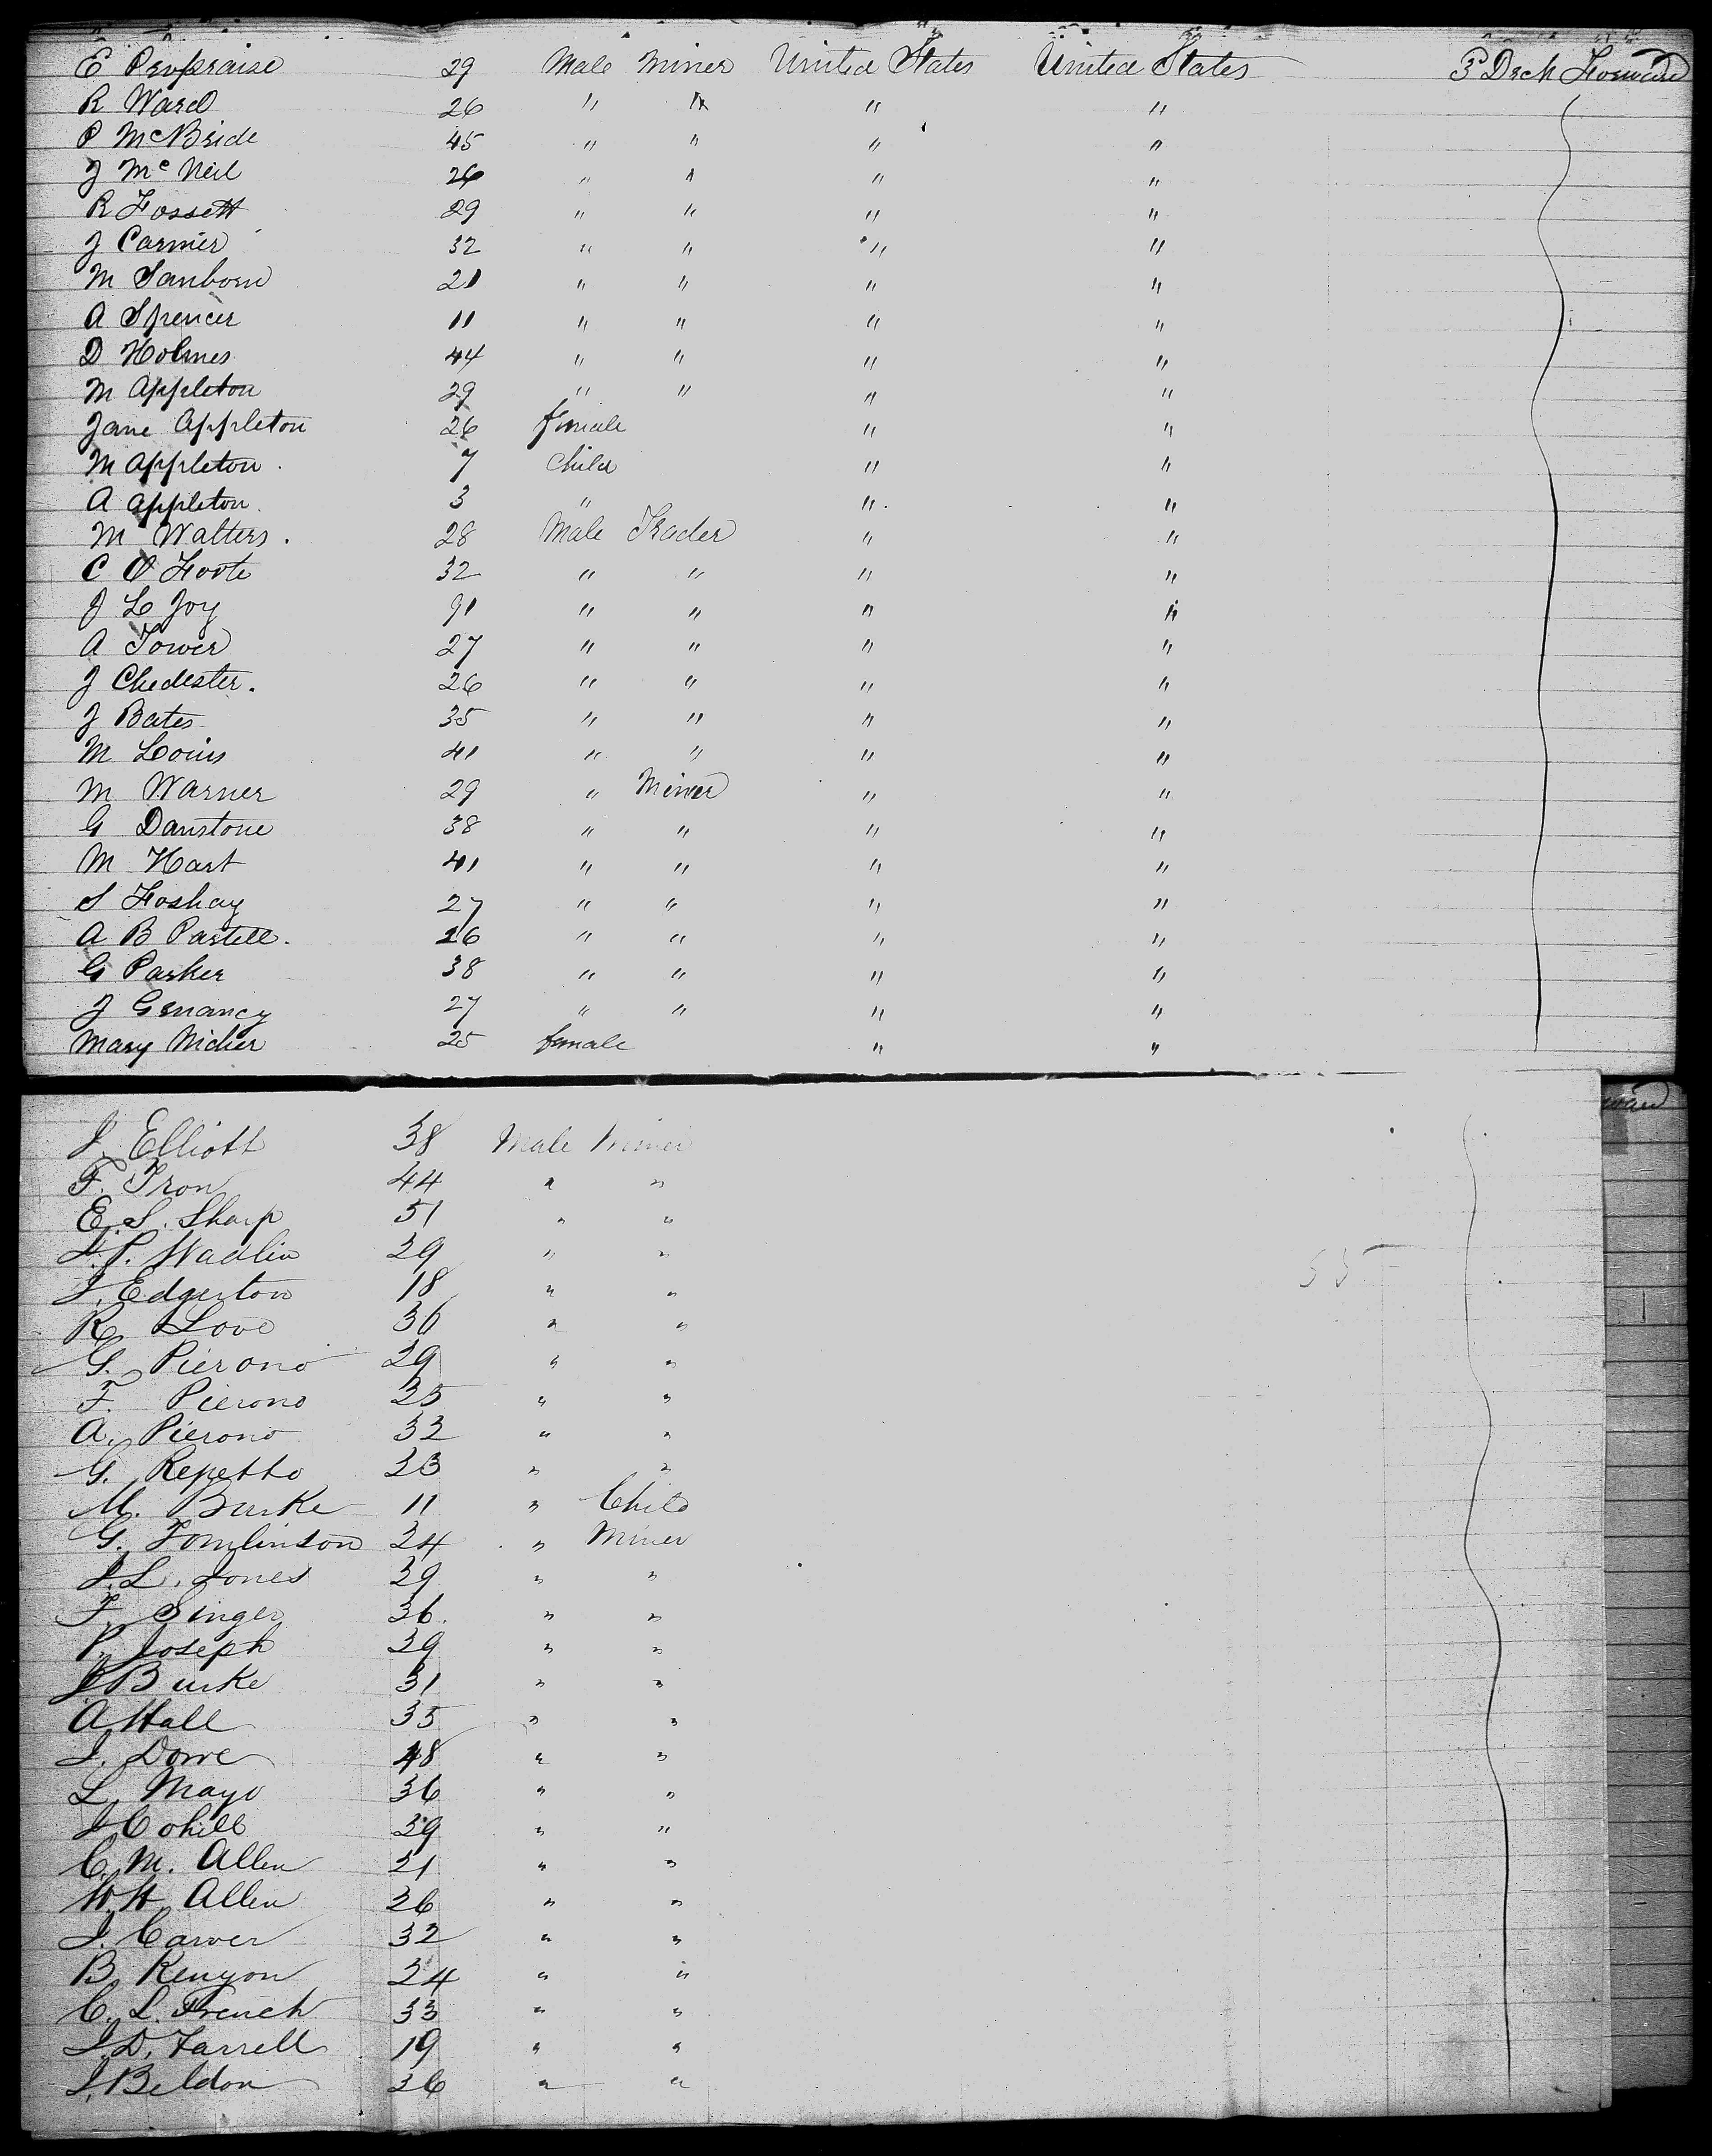 E Provpraise 29 Male Miner United States United States P Deck Forward
R Ward 26 " " " "
P McBride 45 " " " "
J McNeil 26 " " " "
R Fossett 29 " " " "
J Carmer 32 " " " "
M Sanborn 21 " " " "
A Spencer 11 " " " "
D Holmes 44 " " " "
M Appleton 29 " " " "
Jane Appleton 26 female " "
M Appleton 7 Child " "
A Appleton 3 " " "
M Walters. 28 Male Trader " "
C O Foote 32 " " " "
J L Joy 91 " " " "
A Tower 27 " " " "
J Chedester. 26 " " " "
J Bates 35 " " " "
M Louis 41 " " " "
M Warner 29 " Miner " "
G Danstone 38 " " " "
M Hart 41 " " " "
S Foshay 27 " " " "
A B Partell. 26 " " " "
G Parker 38 " " " "
J Genancy 27 " " " "
Mary Nicher 25 female " "
J. Elliott 38 Male Miner
F. Iron 44 " "
E. S. Sharp 51 " "
J. P. Wadlin 29 " "
J. Edgerton 18 " "
R. Love 36 " "
G. Pierano 29 " "
F. Pierono 25 " "
A. Pierono 32 " "
G. Repetto 23 " "
M. Burke 11 " Child
G. Tomlinson 24 " Miner
J. L. Jones 29 " "
F. Singer 36. " "
P. Joseph 29 " "
J Burke 31 " "
A Hall 35 " "
J. Dowe 48 " "
L. Mayo 36 " "
J Cohill 29 " "
C. M. Allen 21 " "
W. H. Allen 26 " "
J. Carver 32 " "
B. Kenyon 24 " "
C. L. French 33 " "
J. D. Farrell 19 " "
J. Beldon 26 " "